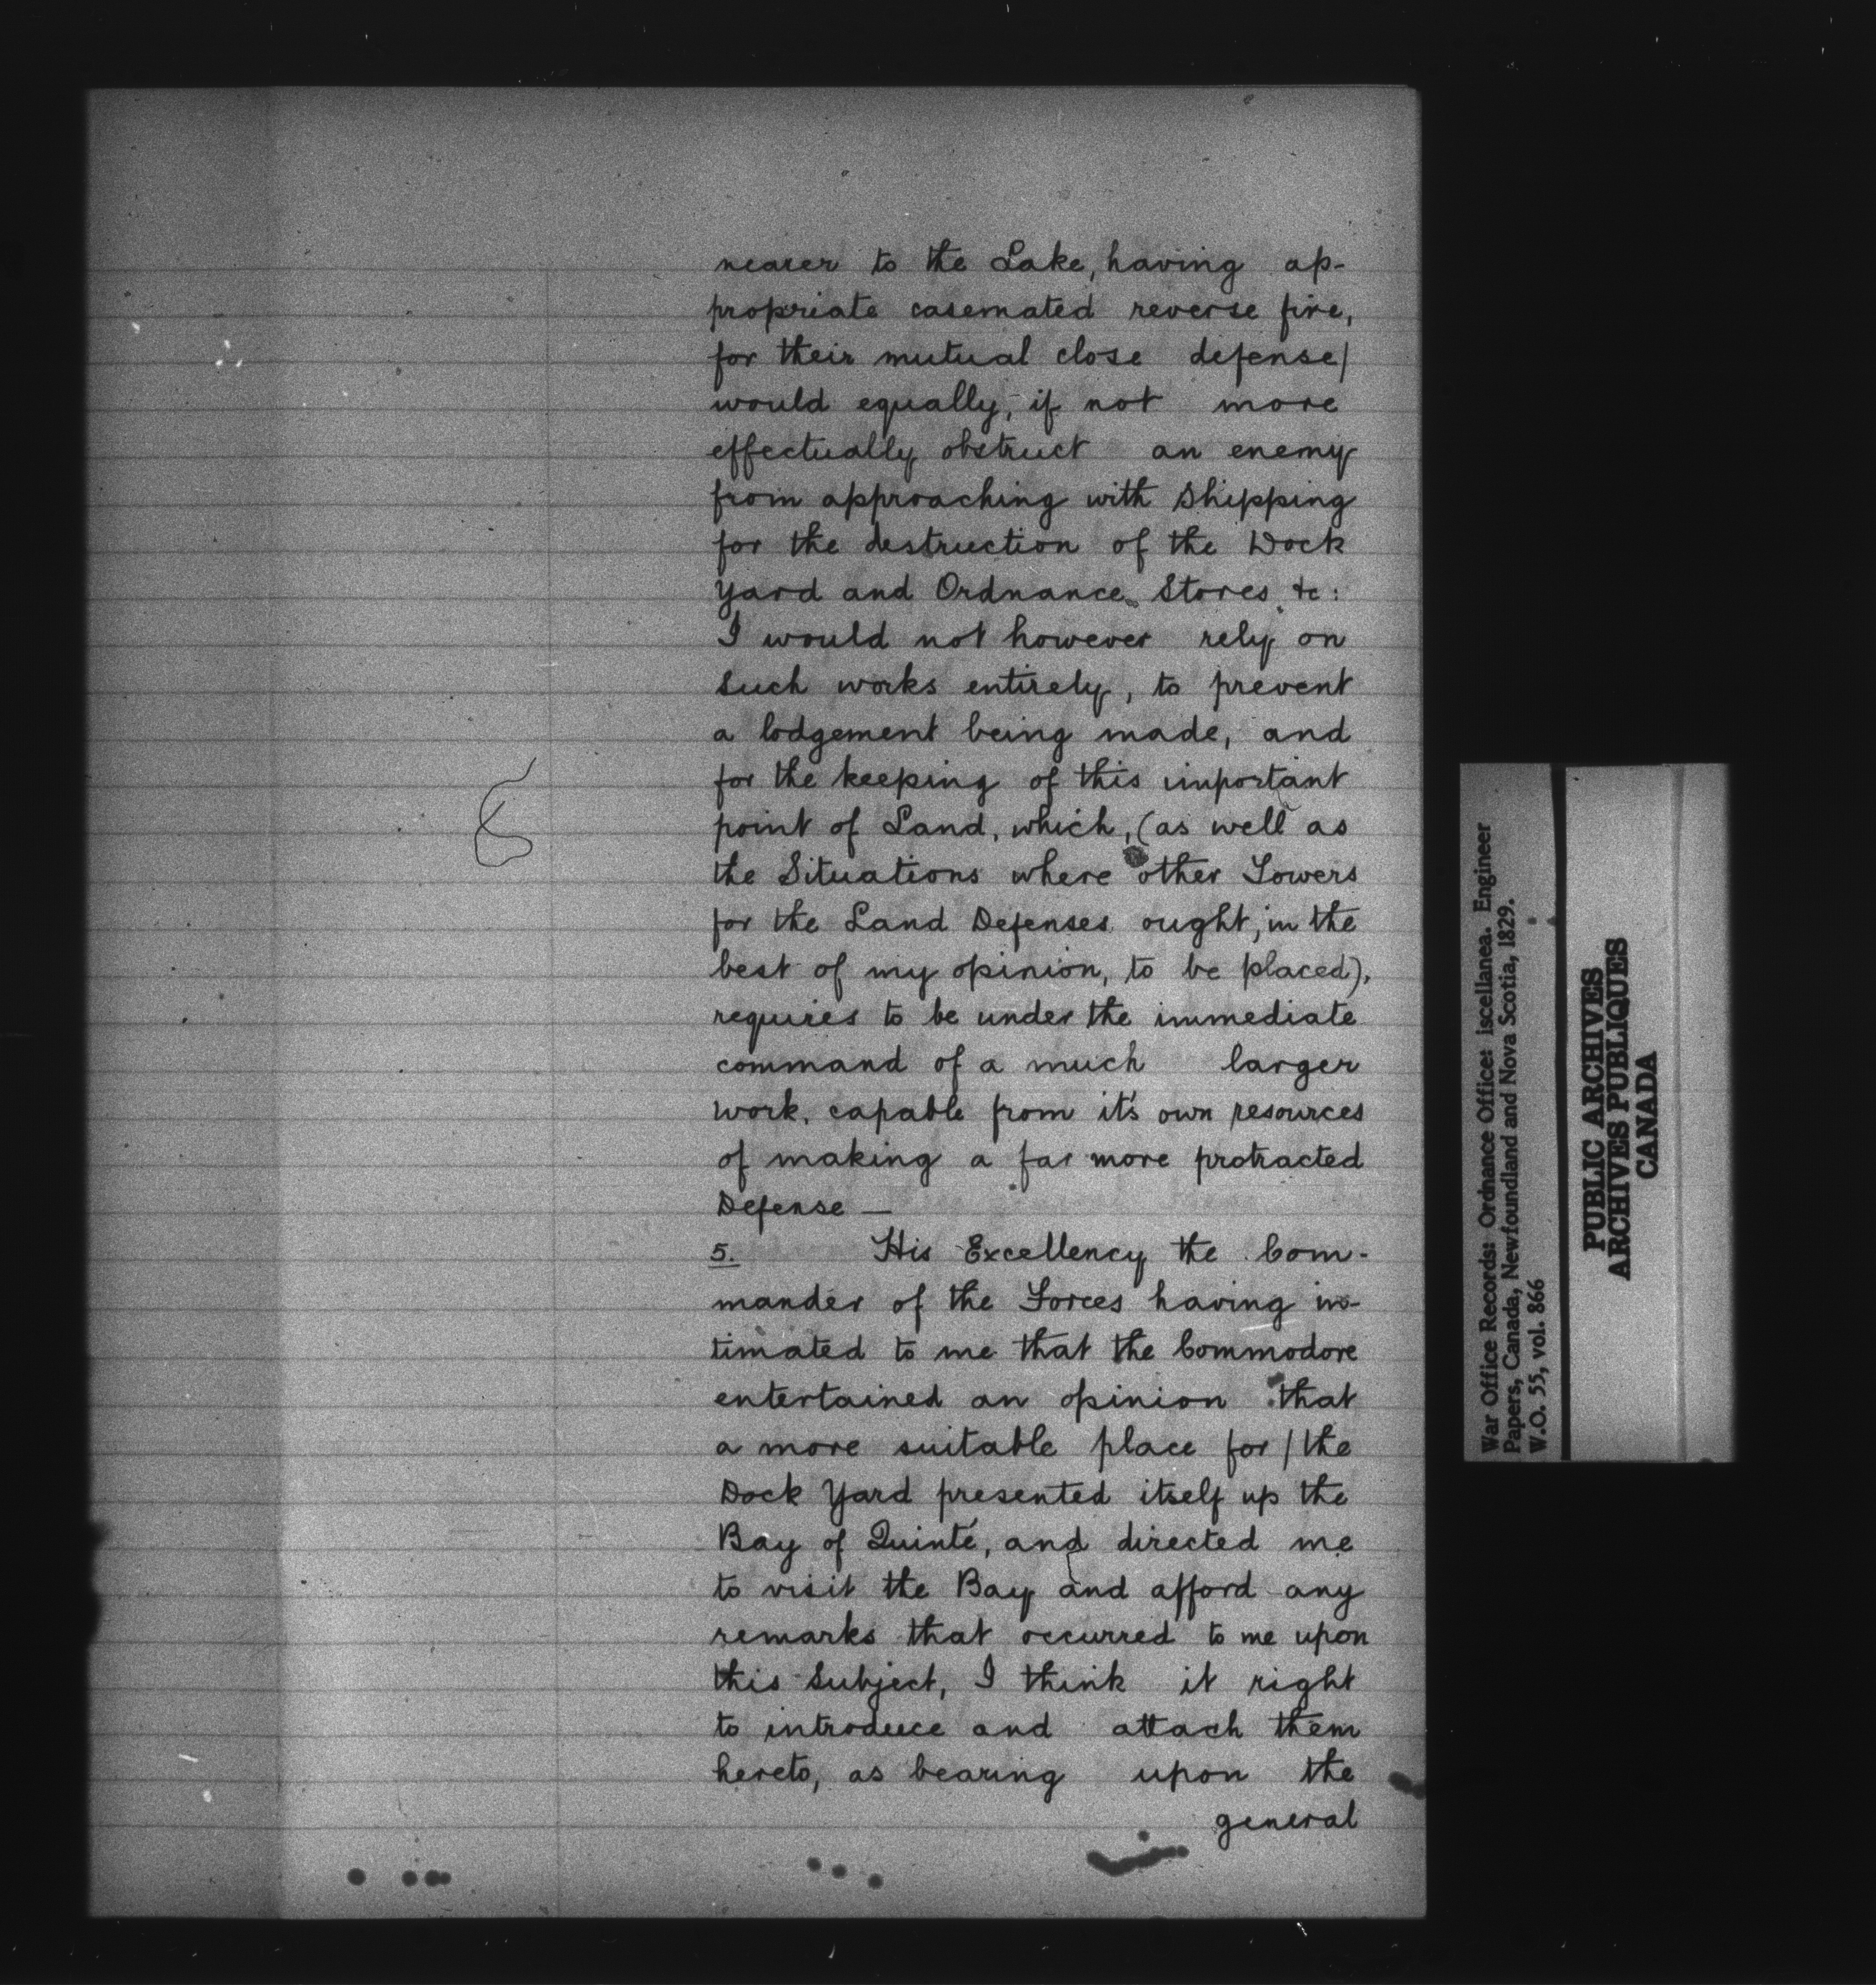 nearer to the Lake, having ap-
propriate casemated reverse fire,
for their mutual close defense/
would equally, if not more
effectually obstruct an enemy
from approaching with Shipping
for the destruction of the Dock
Yard and Ordnance Stores &c:
I would not however rely on
such works entirely, to prevent
a lodgement being made, and
for the keeping of this important
point of Land, which, (as well as
the Situations where other Towers
for the Land Defenses ought, in the
best of my opinion, to be placed),
requires to be under the immediate
command of a much larger
work, capable from it's own resources
of making a far more protracted
Defense —
5. His Excellency the Com-
mander of the Forces having in-
timated to me that the Commodore
entertained an opinion that
a more suitable place for / the
Dock Yard presented itself up the
Bay of Quinté, and directed me
to visit the Bay and afford any
remarks that occurred to me upon
this Subject, I think it right
to introduce and attach them
hereto, as bearing upon the
general
War Office Records: Ordnance Office: iscellanea. Engineer
Papers, Canada, Newfoundland and Nova Scotia, 1829.
W.O. 55, vol. 866
PUBLIC ARCHIVES
ARCHIVES PUBLIQUES
CANADA